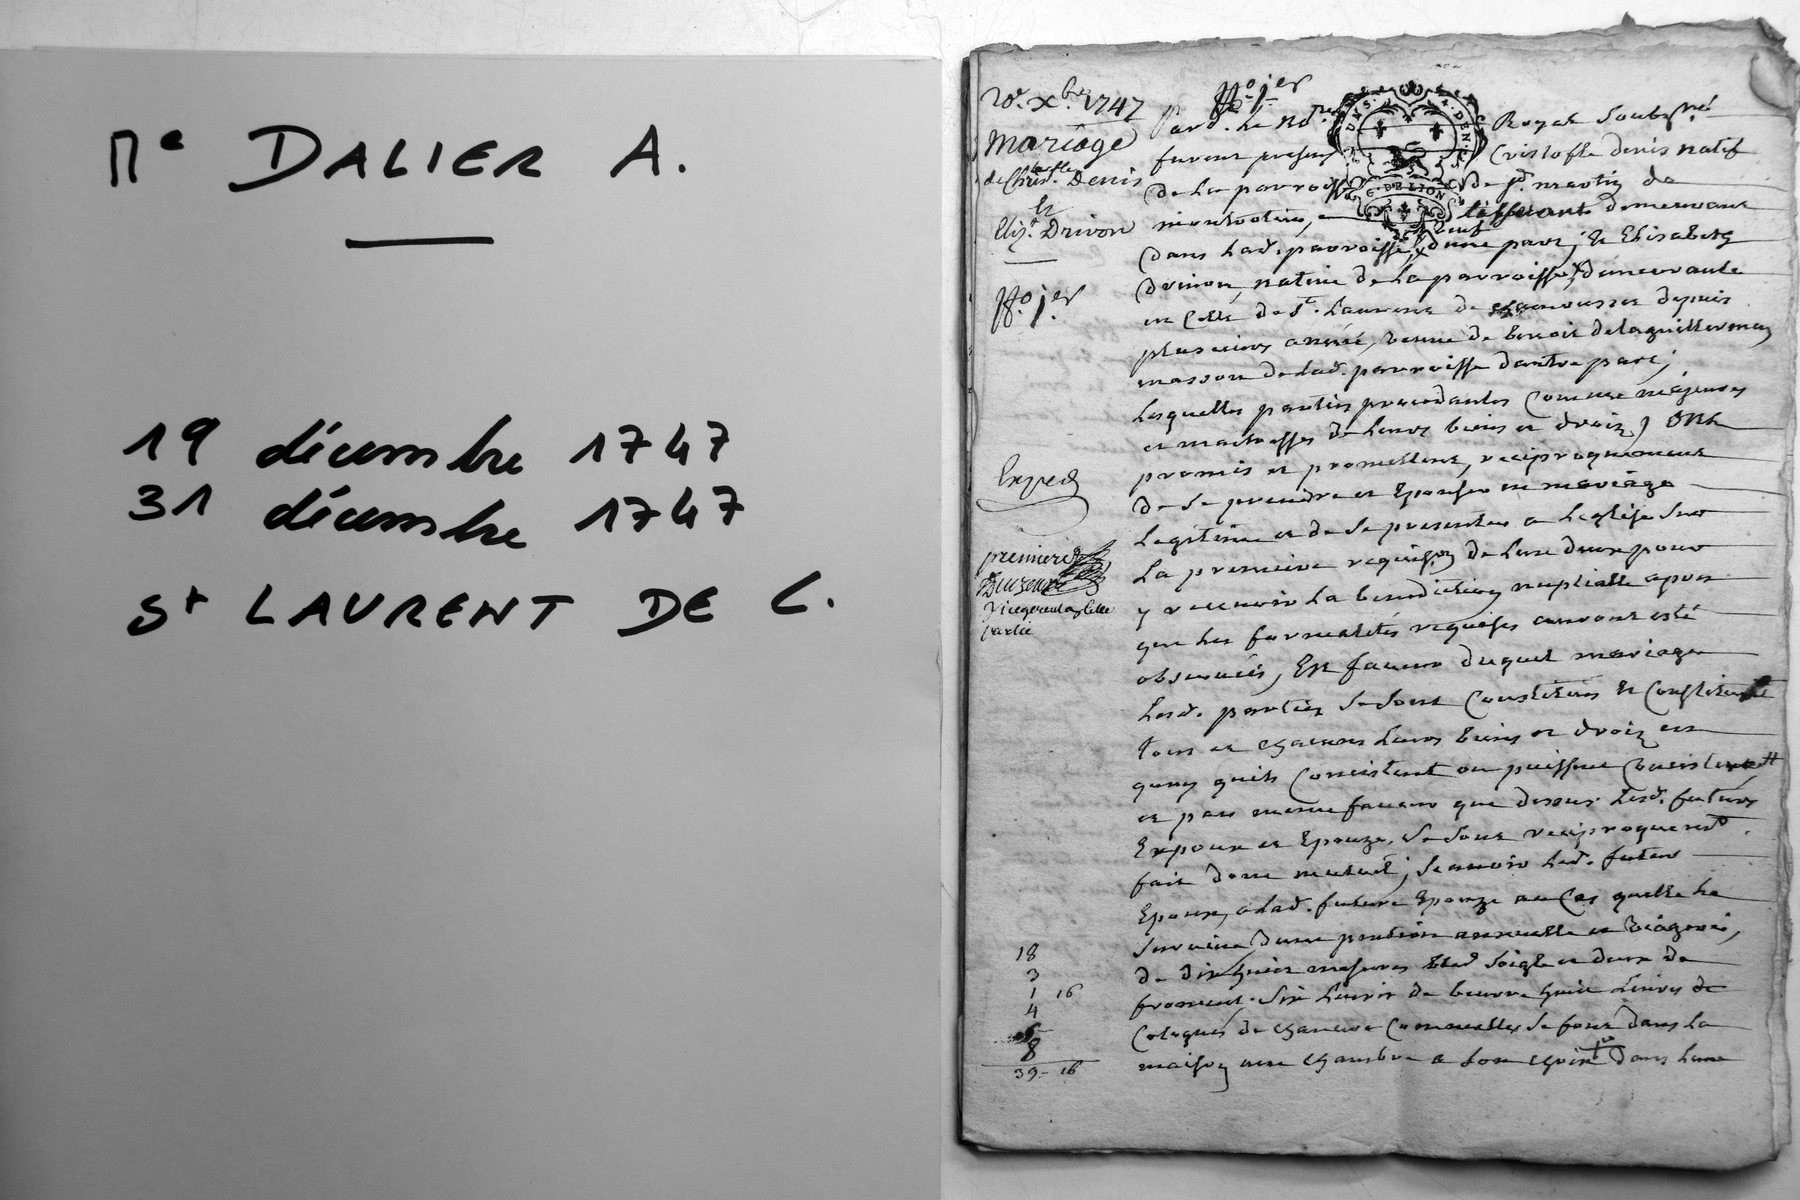 Me DALIER A.
19 décembre 1747
31 décembre 1747
St LAURENT DE C.
20e. Xbre. 1747
Mariage
de Christofle Denis
et
Eliz. Drivon
ffo. jer
Exped
premiere
partie
18
3
1 16
4
8
39 - 16
ffo. jer
Pard. le No.re Royal soubsné
furent presens Cristofle denis natif
de la parroisse de St. martin de
demeurant
dans lad. parroisse d'une part, et Elisabeth
drivon, native de la parroisse demeurante
en celle de St. Laurent de chamousset depuis
plusieurs année, veuve de benoit delaguillermen
masson de lad. parroisse d'autre part,
lesquelles parties procedantes comme majeures
et maitresses de leurs biens et droiz, ont
promis et promettent, reciproquement
de se prendre et Epouser en mariage
legitime et de se presenter a leglise sur
la premiere requison de lune deux pour
y recevoir la benediction nuptialle apres
que les formalités requises auront esté
observées, En faveur duquel mariage
lesd. parties se sont constitués et constituent
tous et chacuns leurs biens et droiz en
quoy quils consistent ou puissent consister
et par meme faveur que dessus lesd. futurs
Expoux et Epouze, se sont reciproquemt
fait don mutuel, scavoir led. futur
Epoux, a lad. future Epouze au cas quelle le
survive, d'une pention annuelle et viagere,
de dix huit mesures bled soigle et deux de
froment, six livres de beurre huit livres de
de chanvre
maison une chambre a son choix dans lune